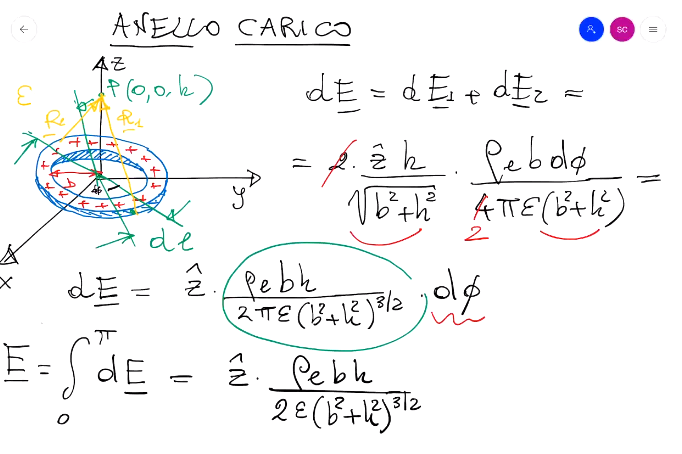 ANELLO CARICO
z
P(0,0,h)
ε
R₂ R₁
b
y
dl
x
dE = dE₁ + dE₂ =
= 2 · ẑ h / √(b²+h²) · ρe b dφ / 4πε(b²+h²) =
2
dE = ẑ · ρe b h / 2πε(b²+h²)^3/2 · dφ
E = ∫₀^π dE = ẑ · ρe b h / 2ε(b²+h²)^3/2
SC